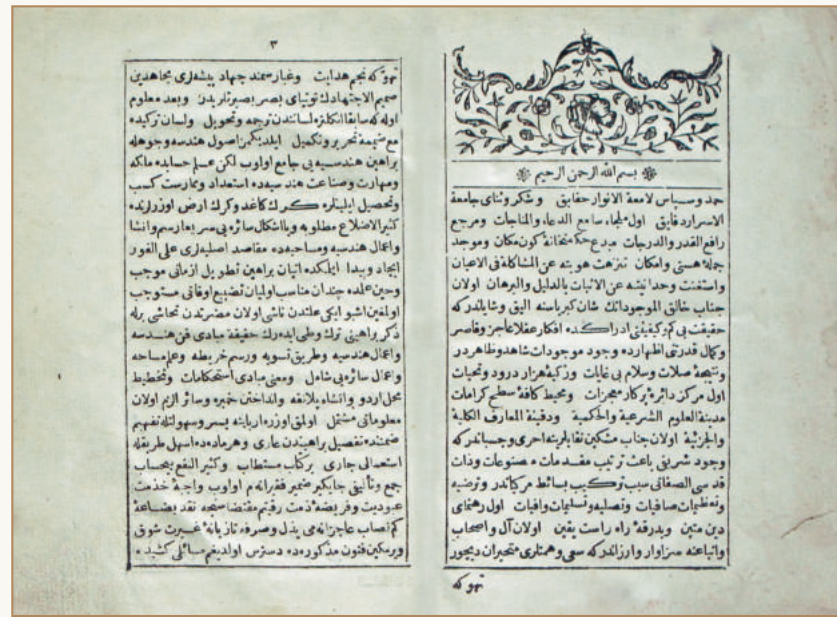 بسم الله الرحمن الرحيم
حمد وسپاس لامعة الانوار حقایق وشكر وثنای جامعة
الاسرار دقایق اول ملجاء سامع الدعاء والمناجات ومرجع
رافع القدر والدرجات مبدع حكمتخانهٔ كون مكان وموجد
جملهٔ هستی وامكان تنزهت هویته عن المشاكلة فی الاعیان
واستغنت وحدانیته عن الاثبات بالدلیل والبرهان اولان
جناب خالق الموجوداتك شان كبریاسنه الیق وشایاندر كه
حقیقت بی كم وكیفینی ادراكده افكار عقلا عاجز وقاصر
وكمال قدرتی اظهارده وجود موجودات شاهد وظاهر در
ونتیجهٔ صلات وسلام بی غایات وزكیهٔ هزار درود وتحیات
اول مركز دائرهٔ پركار معجزات ومحیط كافهٔ سطح كرامات
مدینة العلوم الشرعیة والحكمیة ودفینة المعارف الكلیة
والجزئیة اولان جناب مشكین نقابلرینه احری وچسباندر كه
وجود شریفی باعث ترتیب مقدمات مصنوعات وذات
قدسی الصفاتی سبب تركیب بسائط مركباتدر وترضیه
وتعظیمات صافیات وتصلیه وتسلیمات وافیات اول رهنمای
دین متین وبدرقهٔ راه راست یقین اولان آل واصحاب
واتباعنه سزاوار وارزاندر كه سعی وهمتلری متحیران دیجور
تهو كه
٣
تهو كه نجم هدایت وغبار سمند جهاد پیشه‌لری مجاهدین
صمیم الاجتهادك توتیای بصر بصیرتلریدن وبعد معلوم
اوله كه سابقا انكلیزه لسانندن ترجمه وتحویل ولسان تركیده
مع ضمیمه تحریر وتكمیل ایلدیكمز اصول هندسه وجوهله
براهین هندسیه یی جامع اولوب لكن عمله حسابده ملكه
ومهارت وصناعت هندسیه‌ده استعداد وممارست كسب
وتحصیل ایلینلره كرك كاغد وكرك ارض اوزرلرنده
كثیر الاضلاع مطلوبه ویا اشكال سائره یی سریعا رسم وانشا
واعمال هندسیه ومساحیه‌ده مقاصد اصلیه‌لری علی الفور
ایجاد وپیدا ایلمكده اتیان براهین تطویل ازمانی موجب
وحین عملده چندان مناسب اولیان تضییع اوقاتی مستوجب
اولمغین اشبو ایكی علتدن ناشی اولان مضرتدن تحاشی برله
ذكر براهینی ترك وطی ایده‌رك حقیقة مبادی فن هندسه
واعمال هندسیه وطریق تسویه ورسم خریطه وعلم مساحه
واعمال سائره یی شامل ومعنی مبادی استحكامات وتخطیط
محل اردو وانشاء پلانقه وانداختن خمپره وسائر الزم اولان
معلوماتی مشتمل اولمق اوزره اربابنه یسر وسهولتله تفهیم
ضمننده تفصیل براهیندن عاری وهر ماده‌ده اسهل طریقله
استعمالی جاری بر كتاب مستطاب وكثیر النفع بیحساب
جمع وتألیفی جایكیر ضمیر فقیرانه‌م اولوب واجبهٔ خدمت
عبودیت وفریضهٔ ذمت رقیتم مقتضاسنجه نقد بضاعهٔ
كم نصاب عاجزانه‌می بذل وصرفه تازیانهٔ غیرت شوق
ویرمكین فنون مذكوره‌ده دسترس اولدیغم مسائلی كشیده